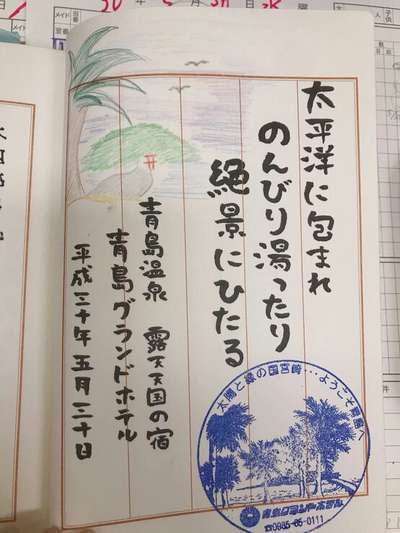 太平洋に包まれ
のんびり湯ったり
絶景にひたる
青島温泉 露天天国の宿
青島グランドホテル
平成三十年五月三十日
太陽と緑の国宮崎…ようこそ青島へ
青島グランドホテル
☎0985-65-0111